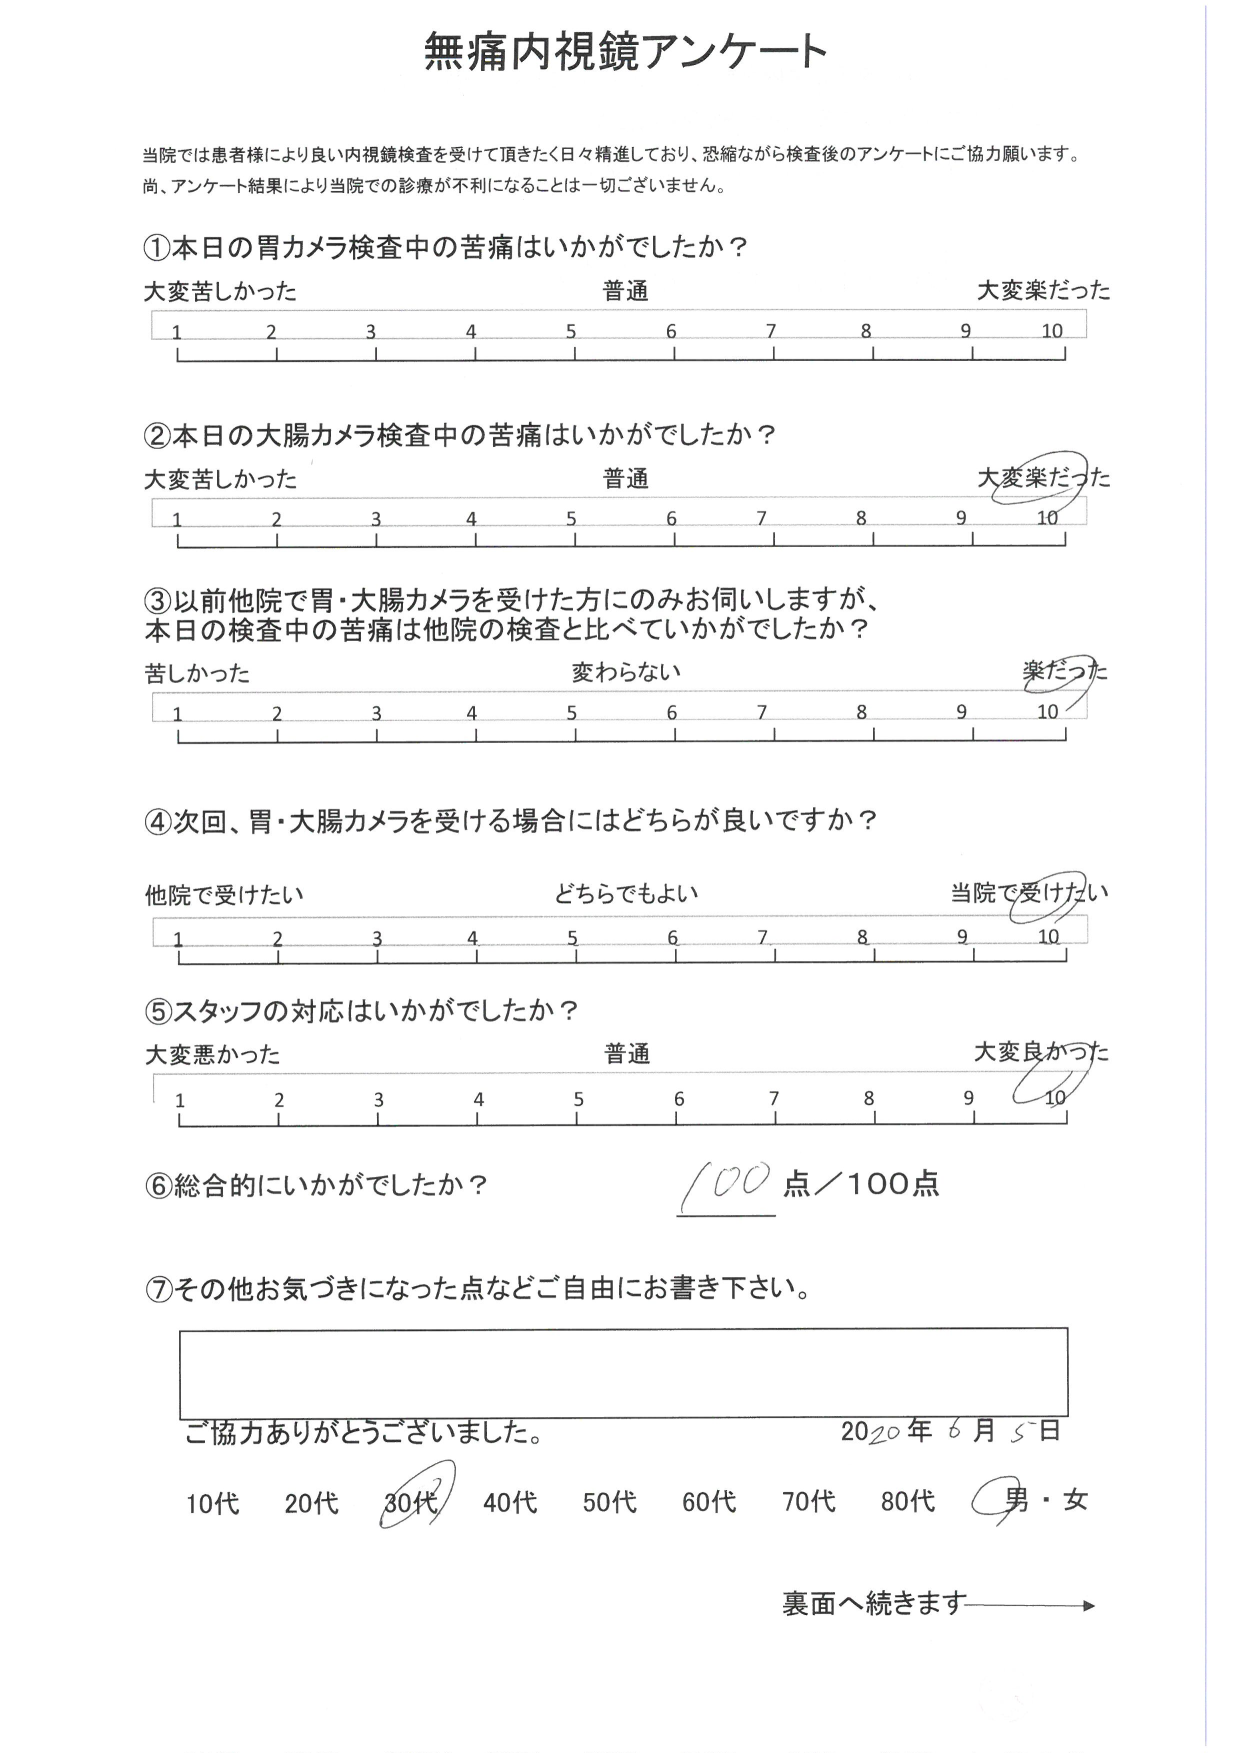 無痛内視鏡アンケート
当院では患者様により良い内視鏡検査を受けて頂きたく日々精進しており、恐縮ながら検査後のアンケートにご協力願います。
尚、アンケート結果により当院での診療が不利になることは一切ございません。
①本日の胃カメラ検査中の苦痛はいかがでしたか？
大変苦しかった 普通 大変楽だった
1 2 3 4 5 6 7 8 9 10
②本日の大腸カメラ検査中の苦痛はいかがでしたか？
大変苦しかった 普通 大変楽だった
1 2 3 4 5 6 7 8 9 10
③以前他院で胃・大腸カメラを受けた方にのみお伺いしますが、
本日の検査中の苦痛は他院の検査と比べていかがでしたか？
苦しかった 変わらない 楽だった
1 2 3 4 5 6 7 8 9 10
④次回、胃・大腸カメラを受ける場合にはどちらが良いですか？
他院で受けたい どちらでもよい 当院で受けたい
1 2 3 4 5 6 7 8 9 10
⑤スタッフの対応はいかがでしたか？
大変悪かった 普通 大変良かった
1 2 3 4 5 6 7 8 9 10
⑥総合的にいかがでしたか？ 100 点／100点
⑦その他お気づきになった点などご自由にお書き下さい。
ご協力ありがとうございました。 2020年 6月 5日
10代 20代 30代 40代 50代 60代 70代 80代 男・女
裏面へ続きます